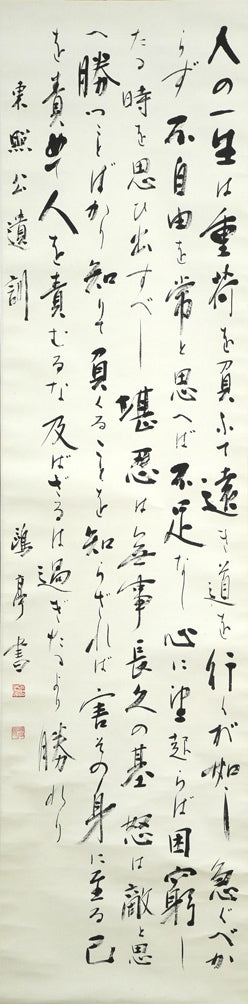 人の一生は重荷を負ふて遠き道を行くが如し急ぐべか
らず不自由を常と思へば不足なし心に望起らば困窮し
たる時を思ひ出すべし堪忍は無事長久の基怒は敵と思
へ勝つことばかり知りて負くることを知らざれば害その身に至る己
を責めて人を責むるな及ばざるは過ぎたるより勝れり
東照公遺訓 鷗亭書